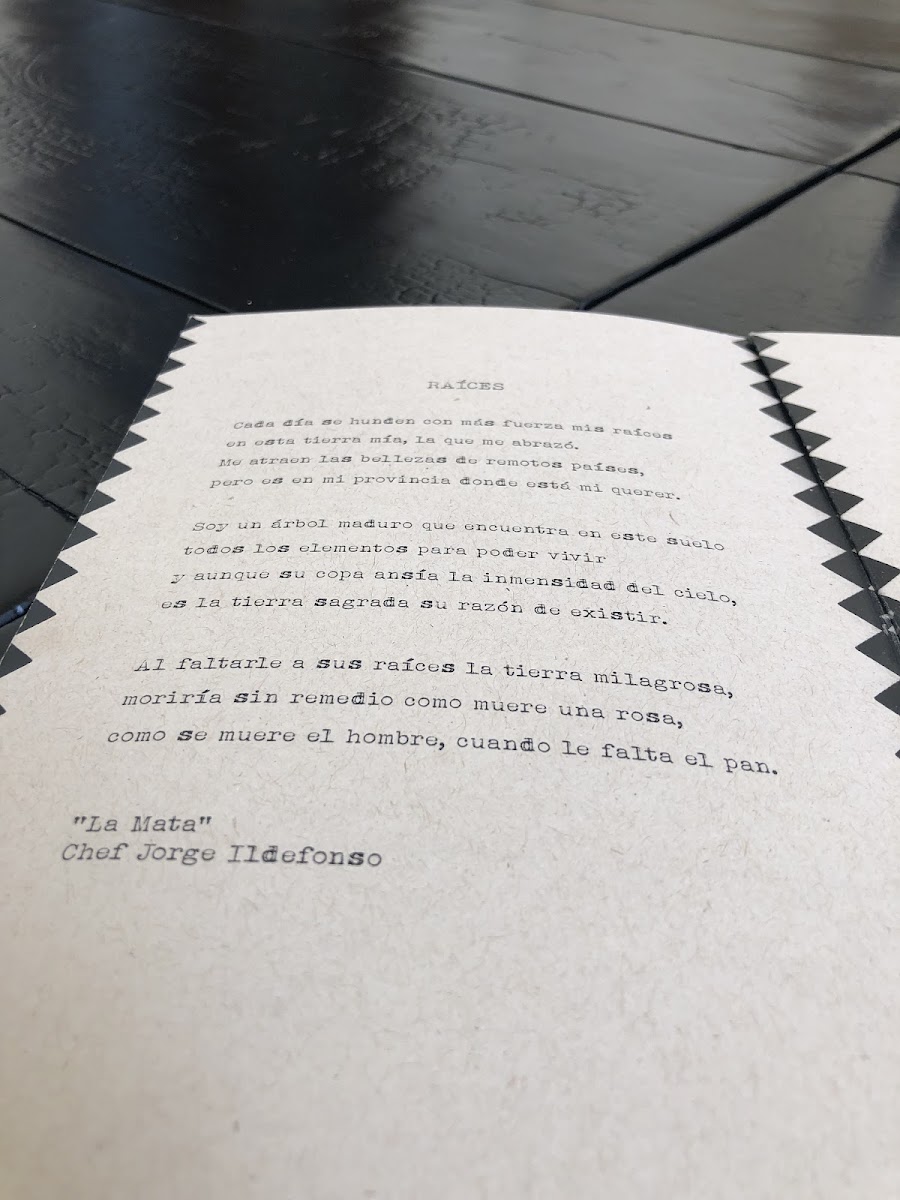 RAÍCES
Cada día se hunden con más fuerza mis raíces
en esta tierra mía, la que me abrazó.
Me atraen las bellezas de remotos países,
pero es en mi provincia donde está mi querer.
Soy un árbol maduro que encuentra en este suelo
todos los elementos para poder vivir
y aunque su copa ansía la inmensidad del cielo,
es la tierra sagrada su razón de existir.
Al faltarle a sus raíces la tierra milagrosa,
moriría sin remedio como muere una rosa,
como se muere el hombre, cuando le falta el pan.
"La Mata"
Chef Jorge Ildefonso